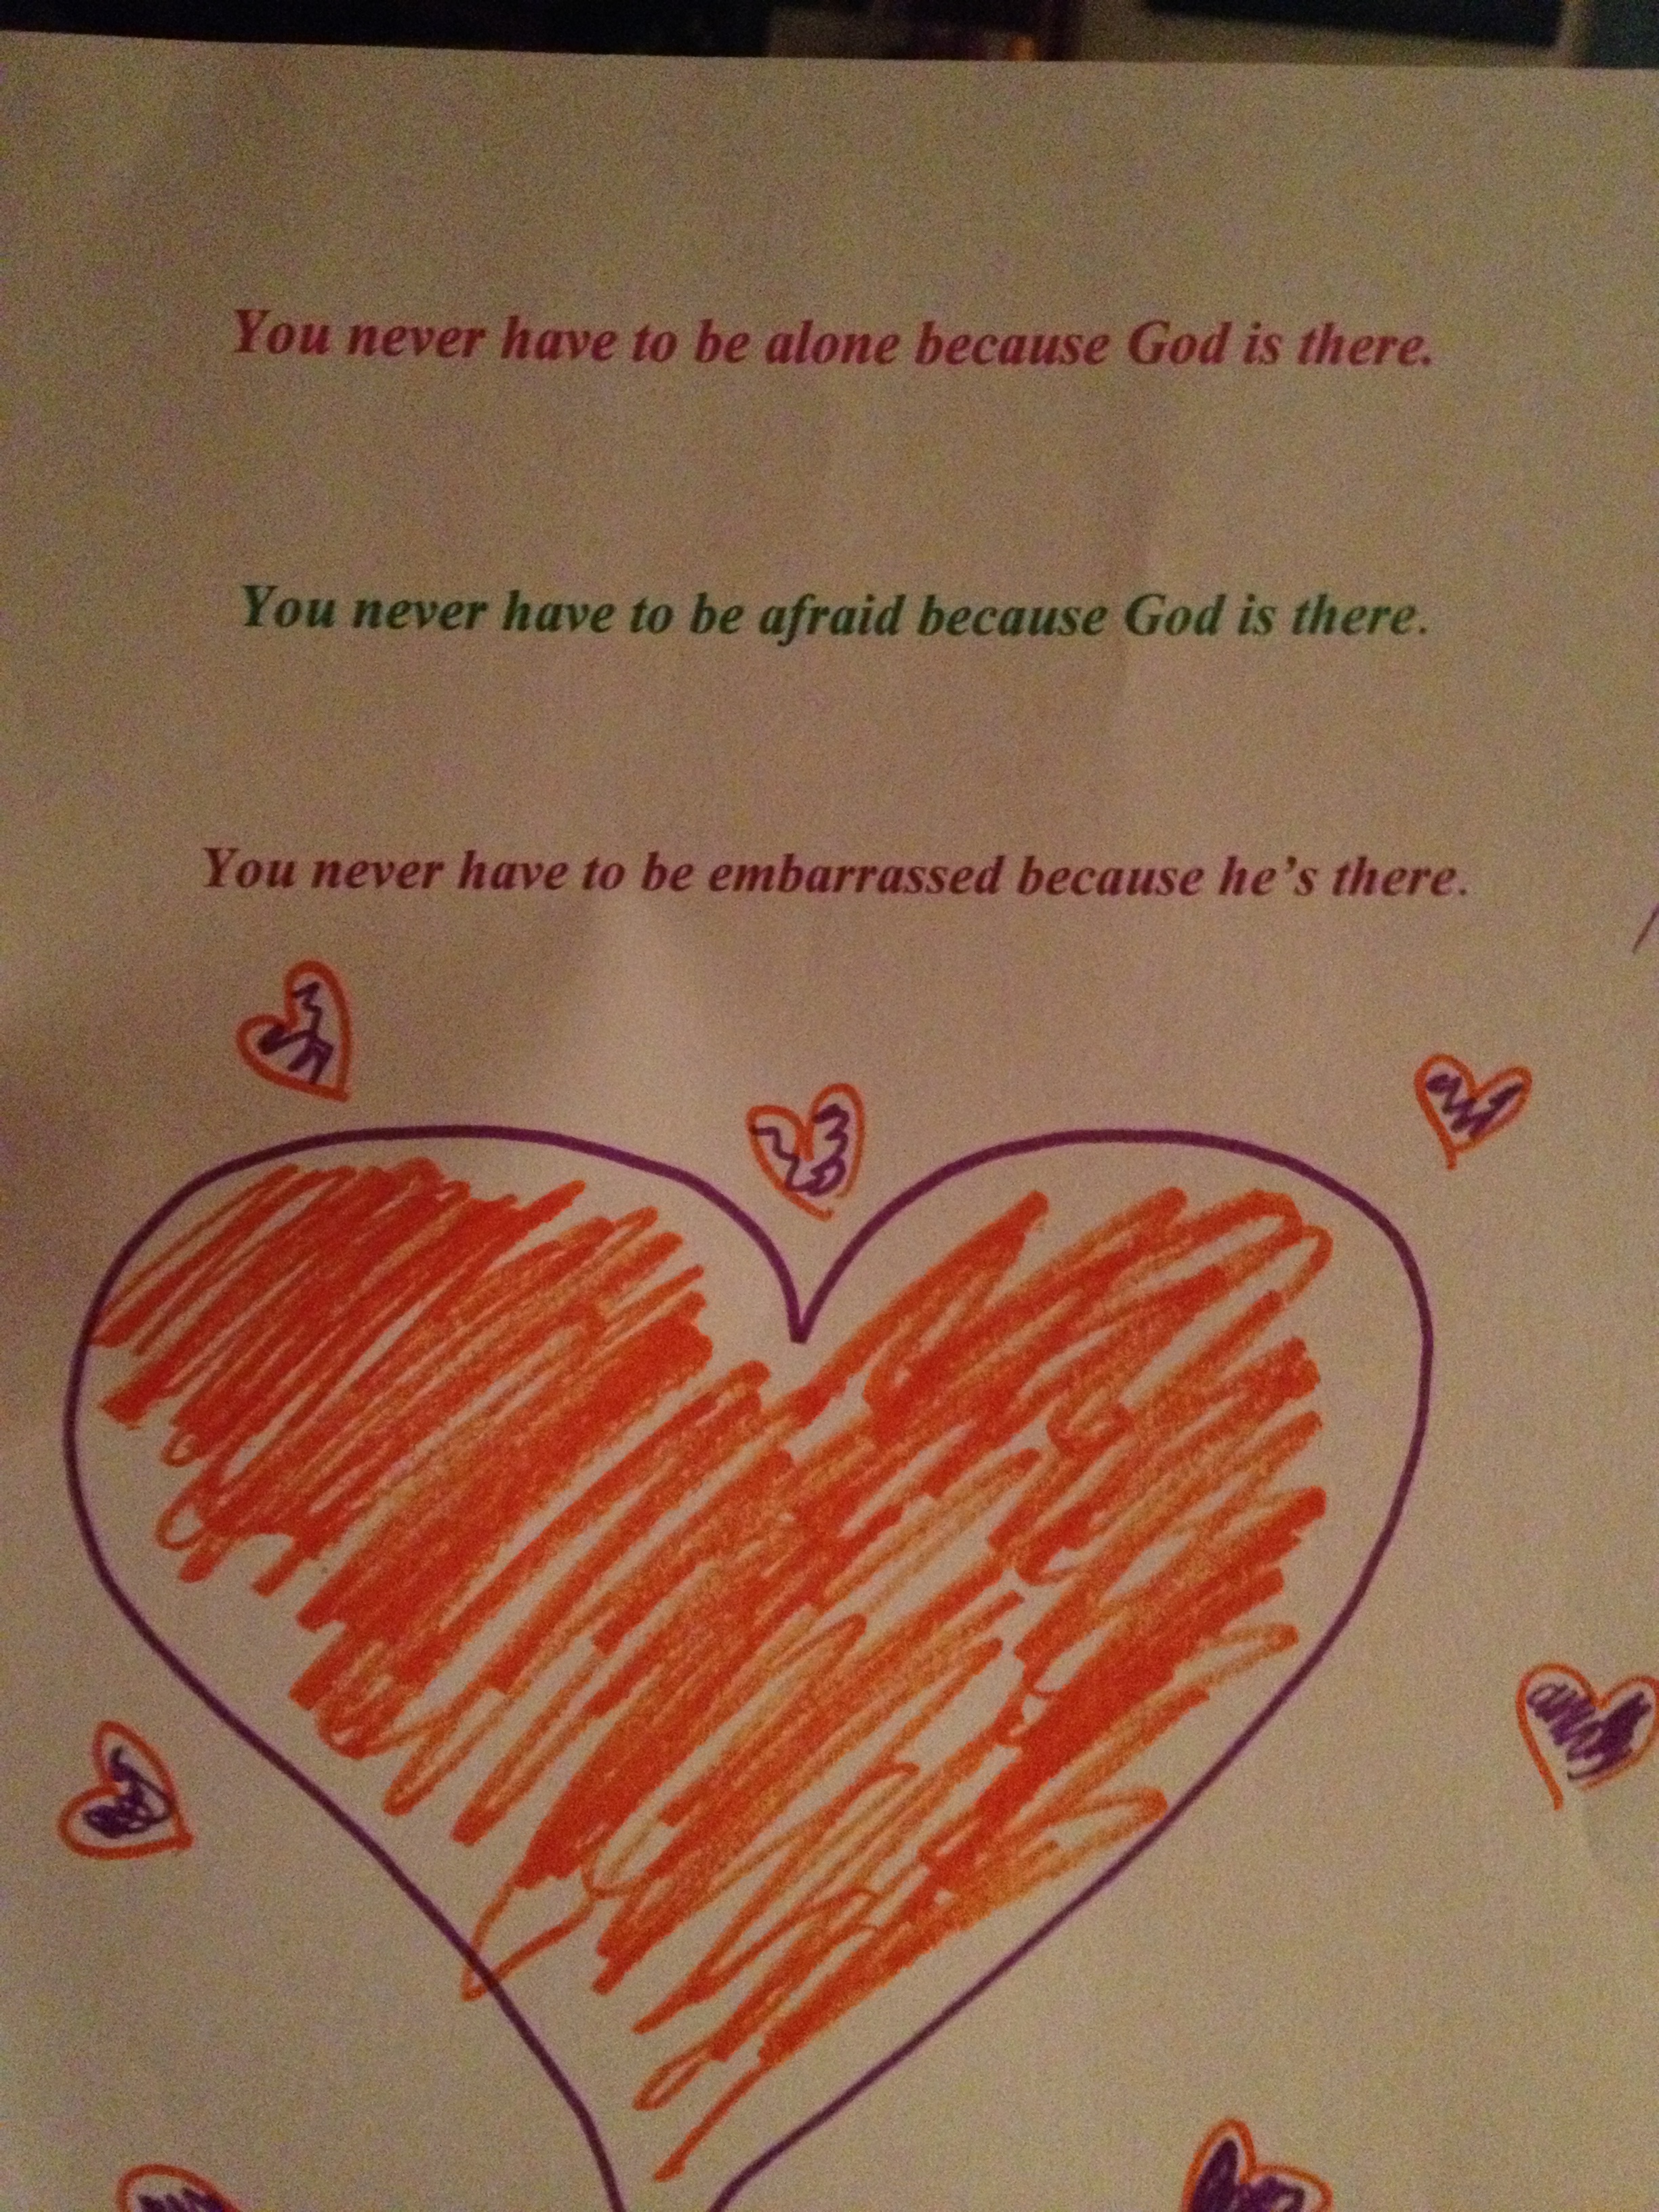 You never have to be alone because God is there.
You never have to be afraid because God is there.
You never have to be embarrassed because he’s there.